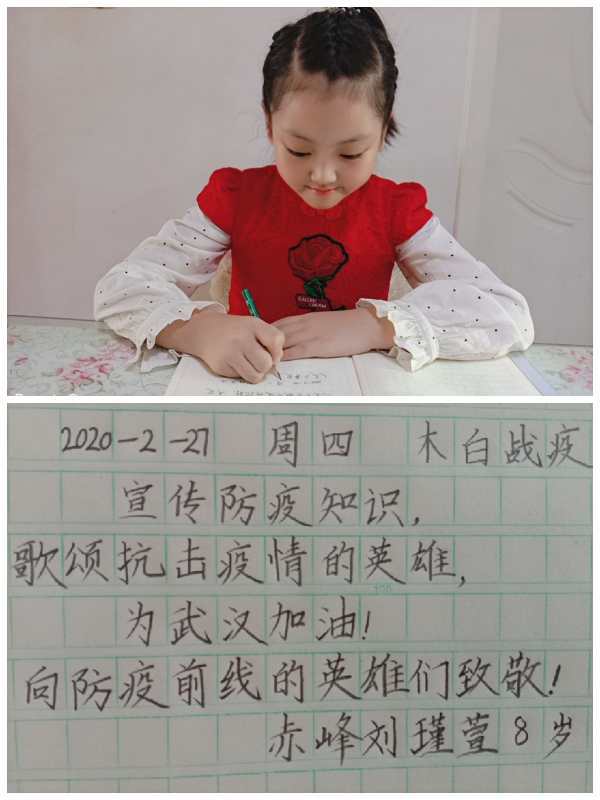 2020-2-27 周四 木白战疫
宣传防疫知识,
歌颂抗击疫情的英雄,
为武汉加油!
向防疫前线的英雄们致敬!
赤峰刘瑾萱8岁